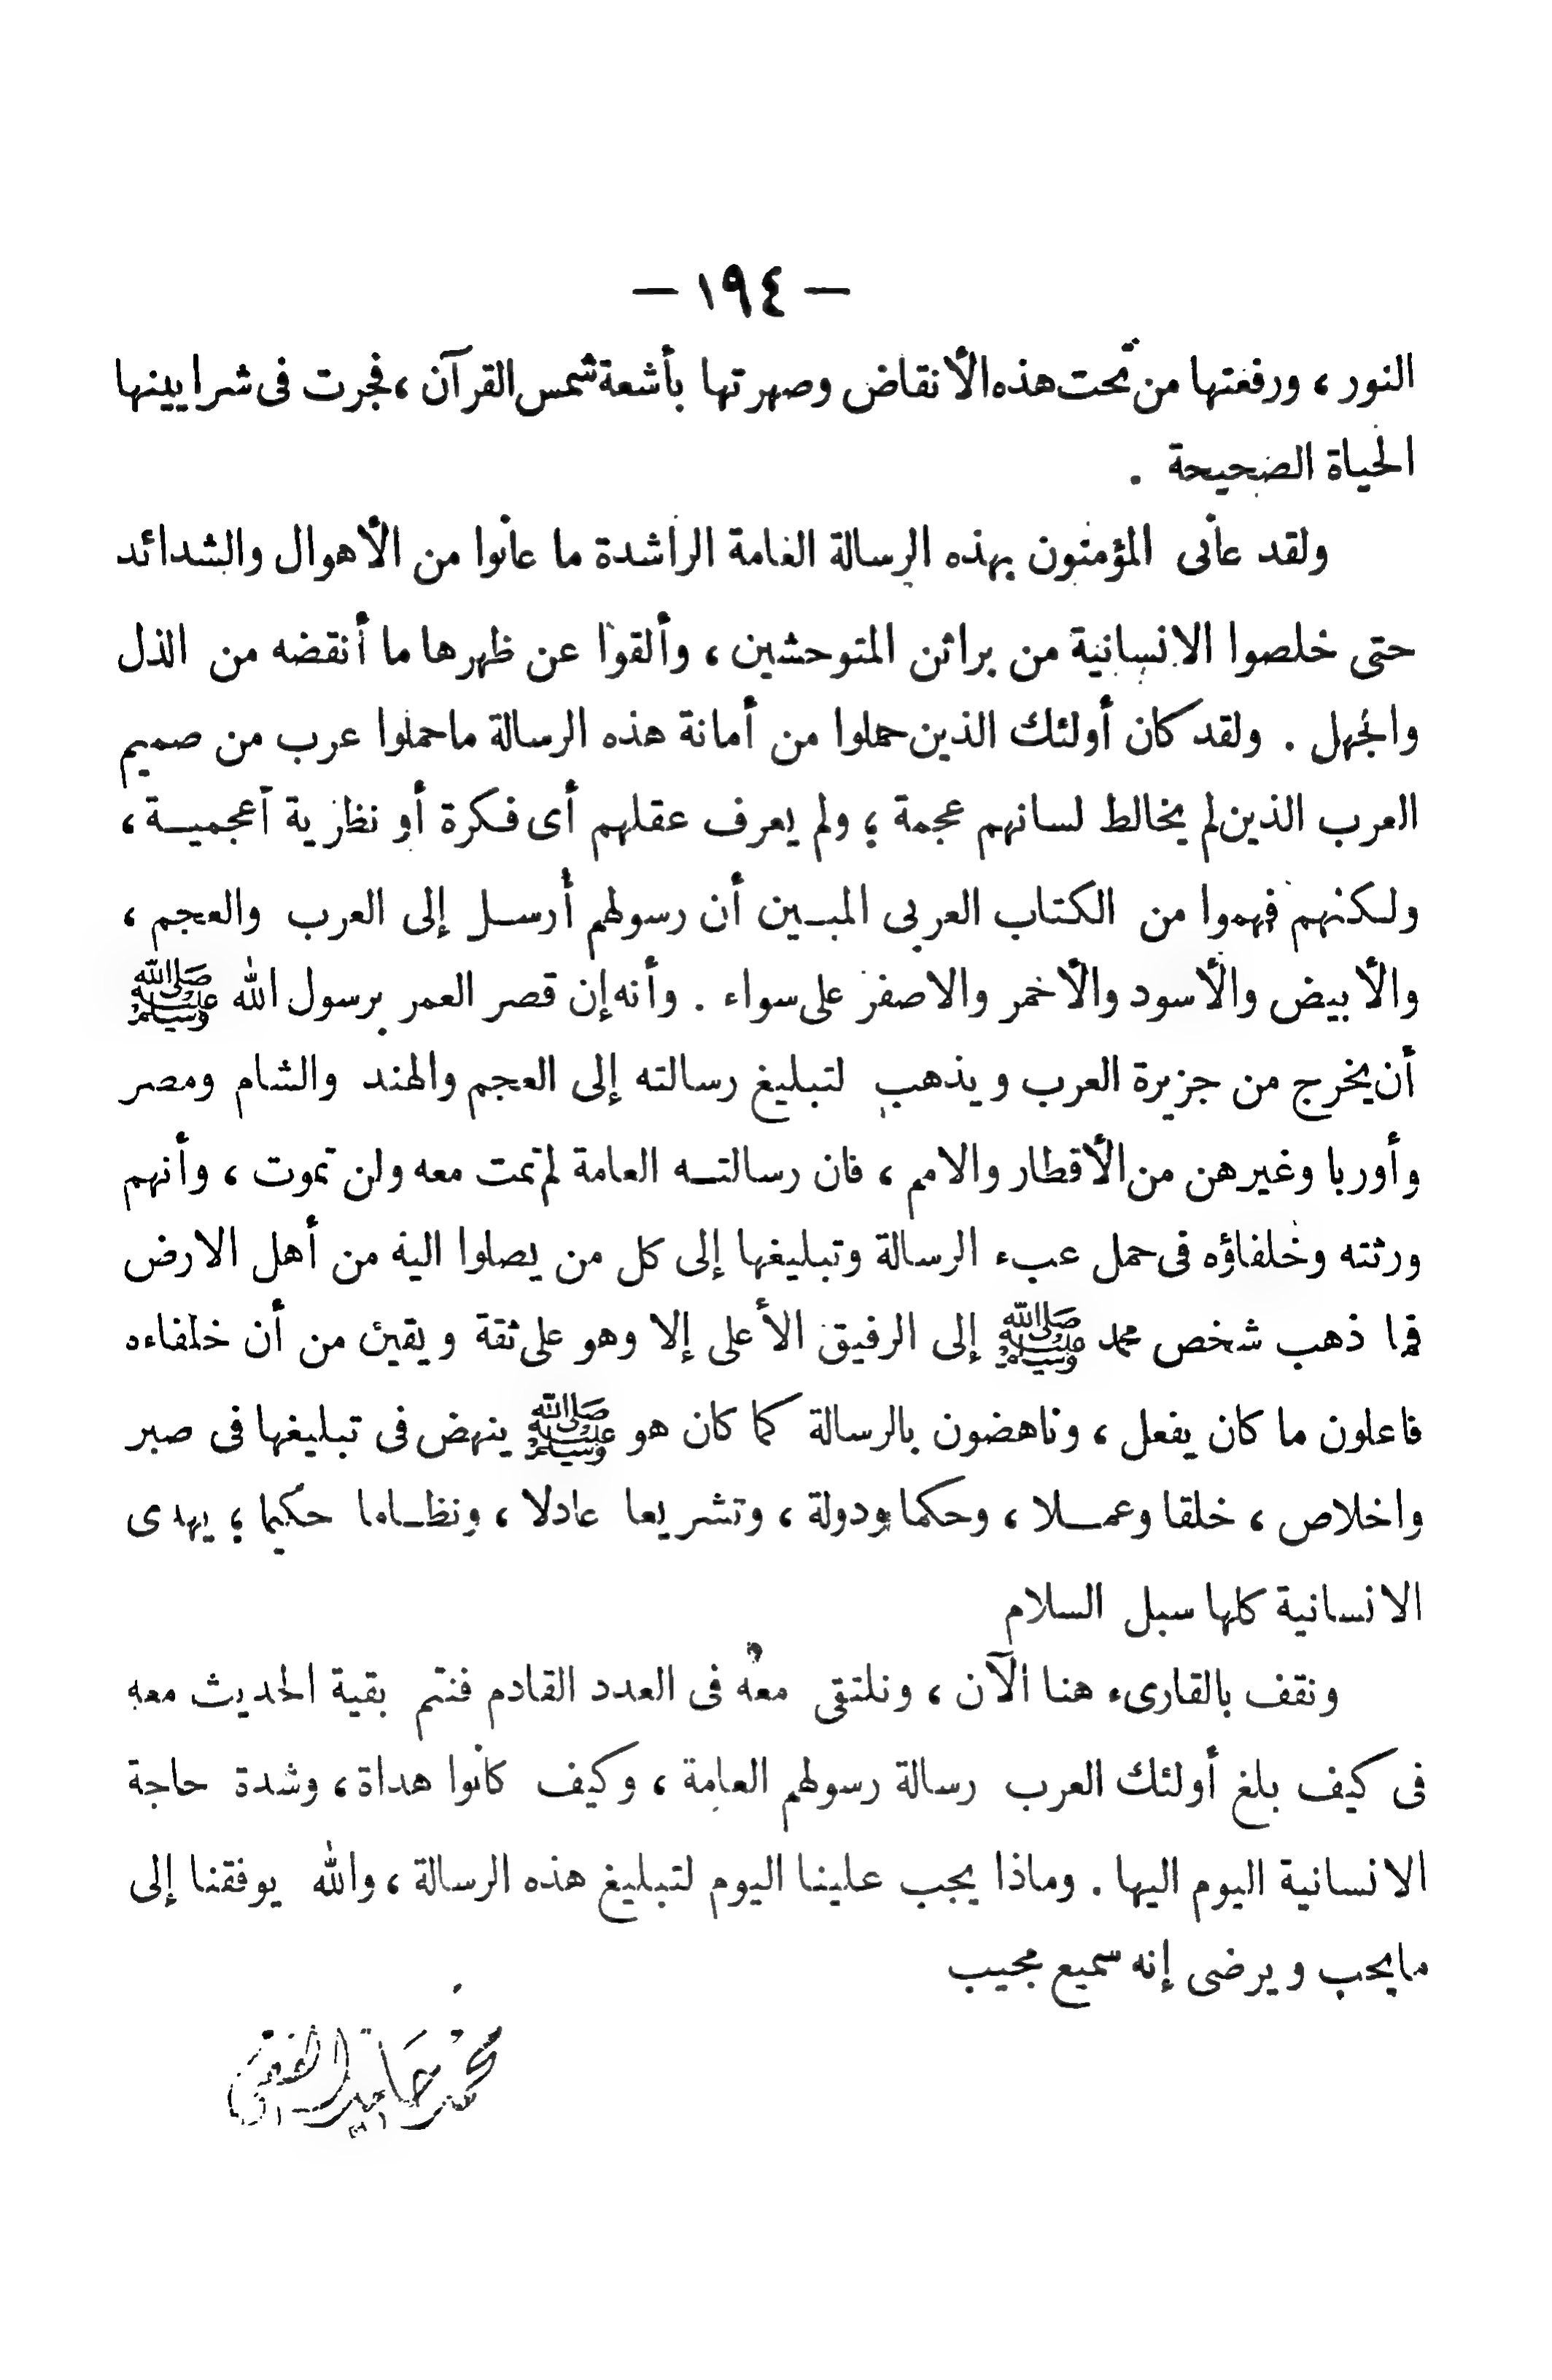 — ١٩٤ —
النور ، ورفعتها من تحت هذه الأنقاض وصهرتها بأشعة شمس القرآن ، فجرت فى شرايينها
الحياة الصحيحة .
ولقد عانى المؤمنون بهذه الرسالة العامة الراشدة ما عانوا من الأهوال والشدائد
حتى خلصوا الانسانية من براثن المتوحشين ، وألقوا عن ظهرها ما أنقضه من الذل
والجهل . ولقد كان أولئك الذين حملوا من أمانة هذه الرسالة ما حملوا عرب من صميم
العرب الذين لم يخالط لسانهم عجمة ؛ ولم يعرف عقلهم أى فكرة أو نظرية أعجميـة ،
ولكنهم فهموا من الكتاب العربى المبـين أن رسولهم أرسـل إلى العرب والعجم ،
والأبيض والأسود والأحمر والاصفر على سواء . وأنه إن قصر العمر برسول الله ﷺ
أن يخرج من جزيرة العرب ويذهب لتبليغ رسالته إلى العجم والهند والشام ومصر
وأوربا وغيرهن من الأقطار والامم ، فان رسالتـه العامة لم تمت معه ولن تموت ، وأنهم
ورثته وخلفاؤه فى حمل عبء الرسالة وتبليغها إلى كل من يصلوا اليه من أهل الارض
فما ذهب شخص محمد ﷺ إلى الرفيق الأعلى إلا وهو على ثقة ويقين من أن خلفاءه
فاعلون ما كان يفعل ، وناهضون بالرسالة كما كان هو ﷺ ينهض فى تبليغها فى صبر
واخلاص ، خلقا وعمـلا ، وحكما ودولة ، وتشريعا عادلا ، ونظـاما حكيما ؛ يهدى
الانسانية كلها سبل السلام
ونقف بالقارىء هنا الآن ، ونلتقى معه فى العدد القادم فنتم بقية الحديث معه
فى كيف بلغ أولئك العرب رسالة رسولهم العامة ، وكيف كانوا هداة ، وشدة حاجة
الانسانية اليوم اليها . وماذا يجب علينا اليوم لتبليغ هذه الرسالة ، والله يوفقنا إلى
ما يحب ويرضى إنه سميع مجيب
محمد حامد الفقى